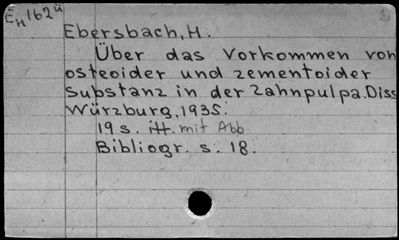 EH 162ü
Ebersbach, H.
Über das Vorkommen von
osteoider und zementoider
Substanz in der Zahnpulpa. Diss
Würzburg, 1935.
19 s. ill. mit Abb.
Bibliogr. s. 18.